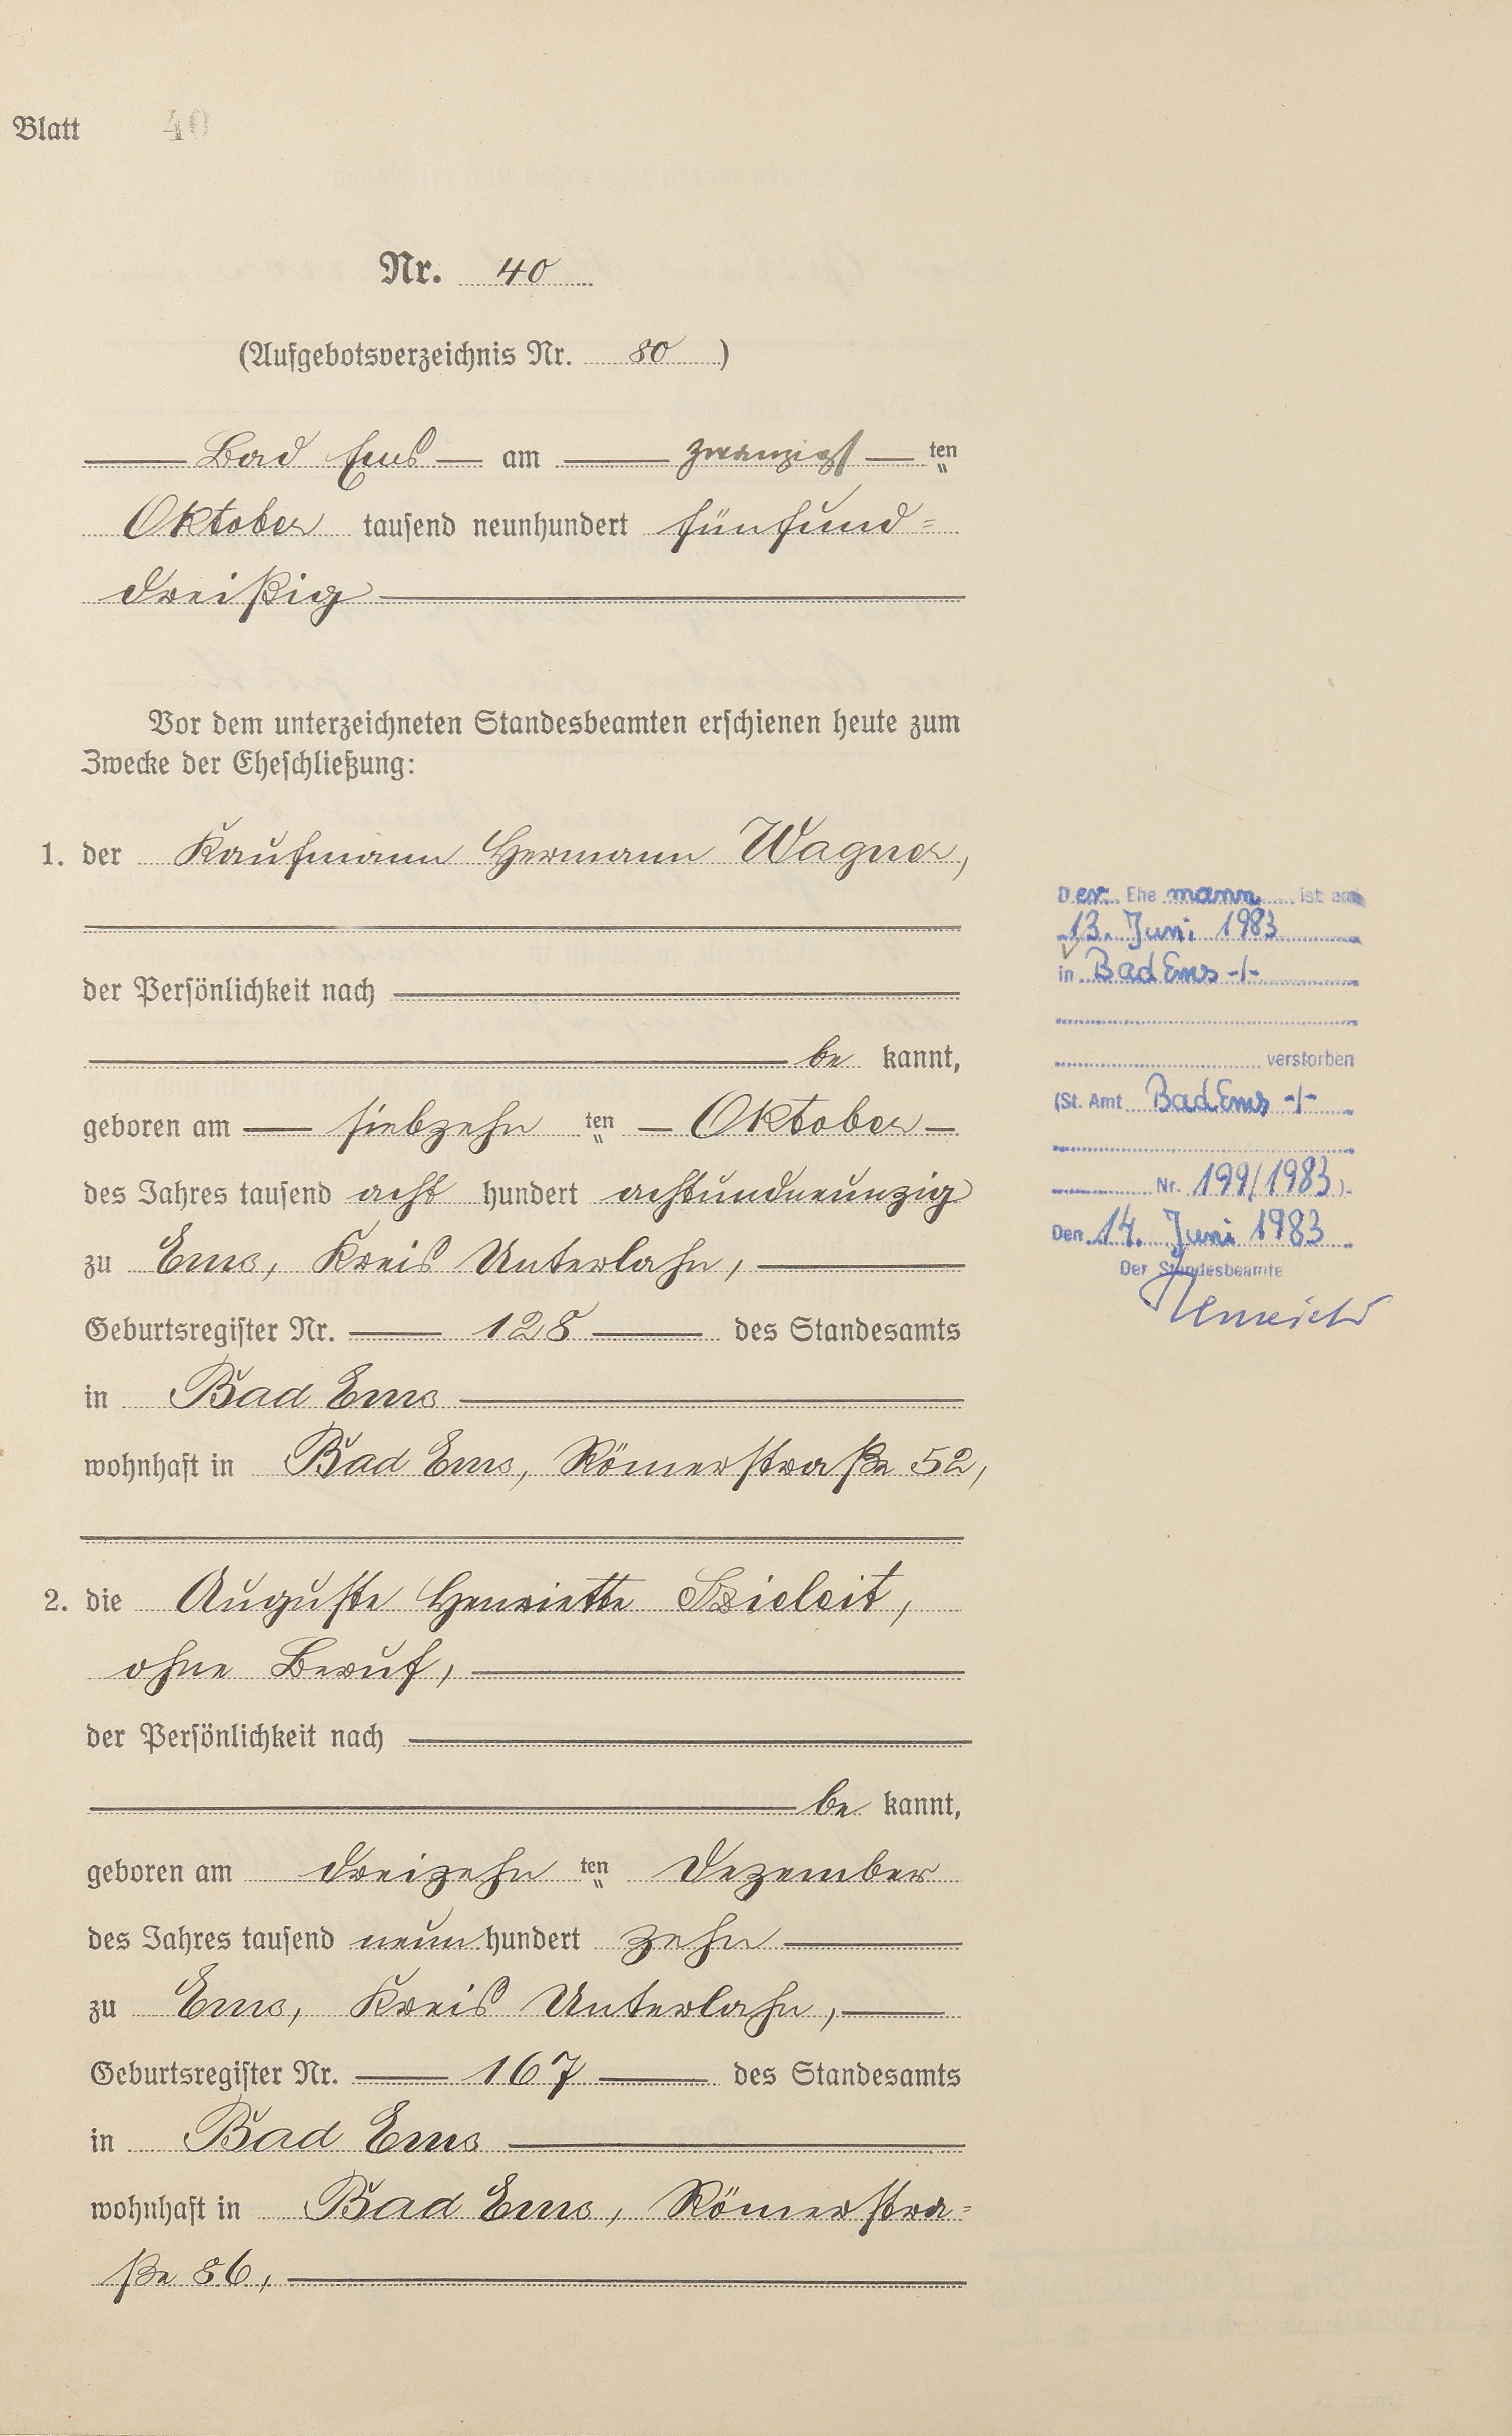 Blatt 40
Nr. 40
(Aufgebotsverzeichnis Nr. 80)
Bad Ems am zwanzigsten
Oktober tausend neunhundert fünfund=
dreißig
Vor dem unterzeichneten Standesbeamten erschienen heute zum
Zwecke der Eheschließung:
1. der Kaufmann Hermann Wagner,
der Persönlichkeit nach
be kannt,
geboren am siebzehn ten Oktober
des Jahres tausend acht hundert achtundneunzig
zu Ems, Kreis Unterlahn,
Geburtsregister Nr. 128 des Standesamts
in Bad Ems
wohnhaft in Bad Ems, Römerstraße 52,
2. die Auguste Henriette Szieleit,
ohne Beruf,
der Persönlichkeit nach
be kannt,
geboren am dreizehn ten Dezember
des Jahres tausend neun hundert zehn
zu Ems, Kreis Unterlahn,
Geburtsregister Nr. 167 des Standesamts
in Bad Ems
wohnhaft in Bad Ems, Römerstra=
ße 86,
Der Ehemann ist am
13. Juni 1983
in Bad Ems -/-
verstorben
(St. Amt Bad Ems -/-
Nr. 199/1983).
Den 14. Juni 1983
Der Standesbeamte